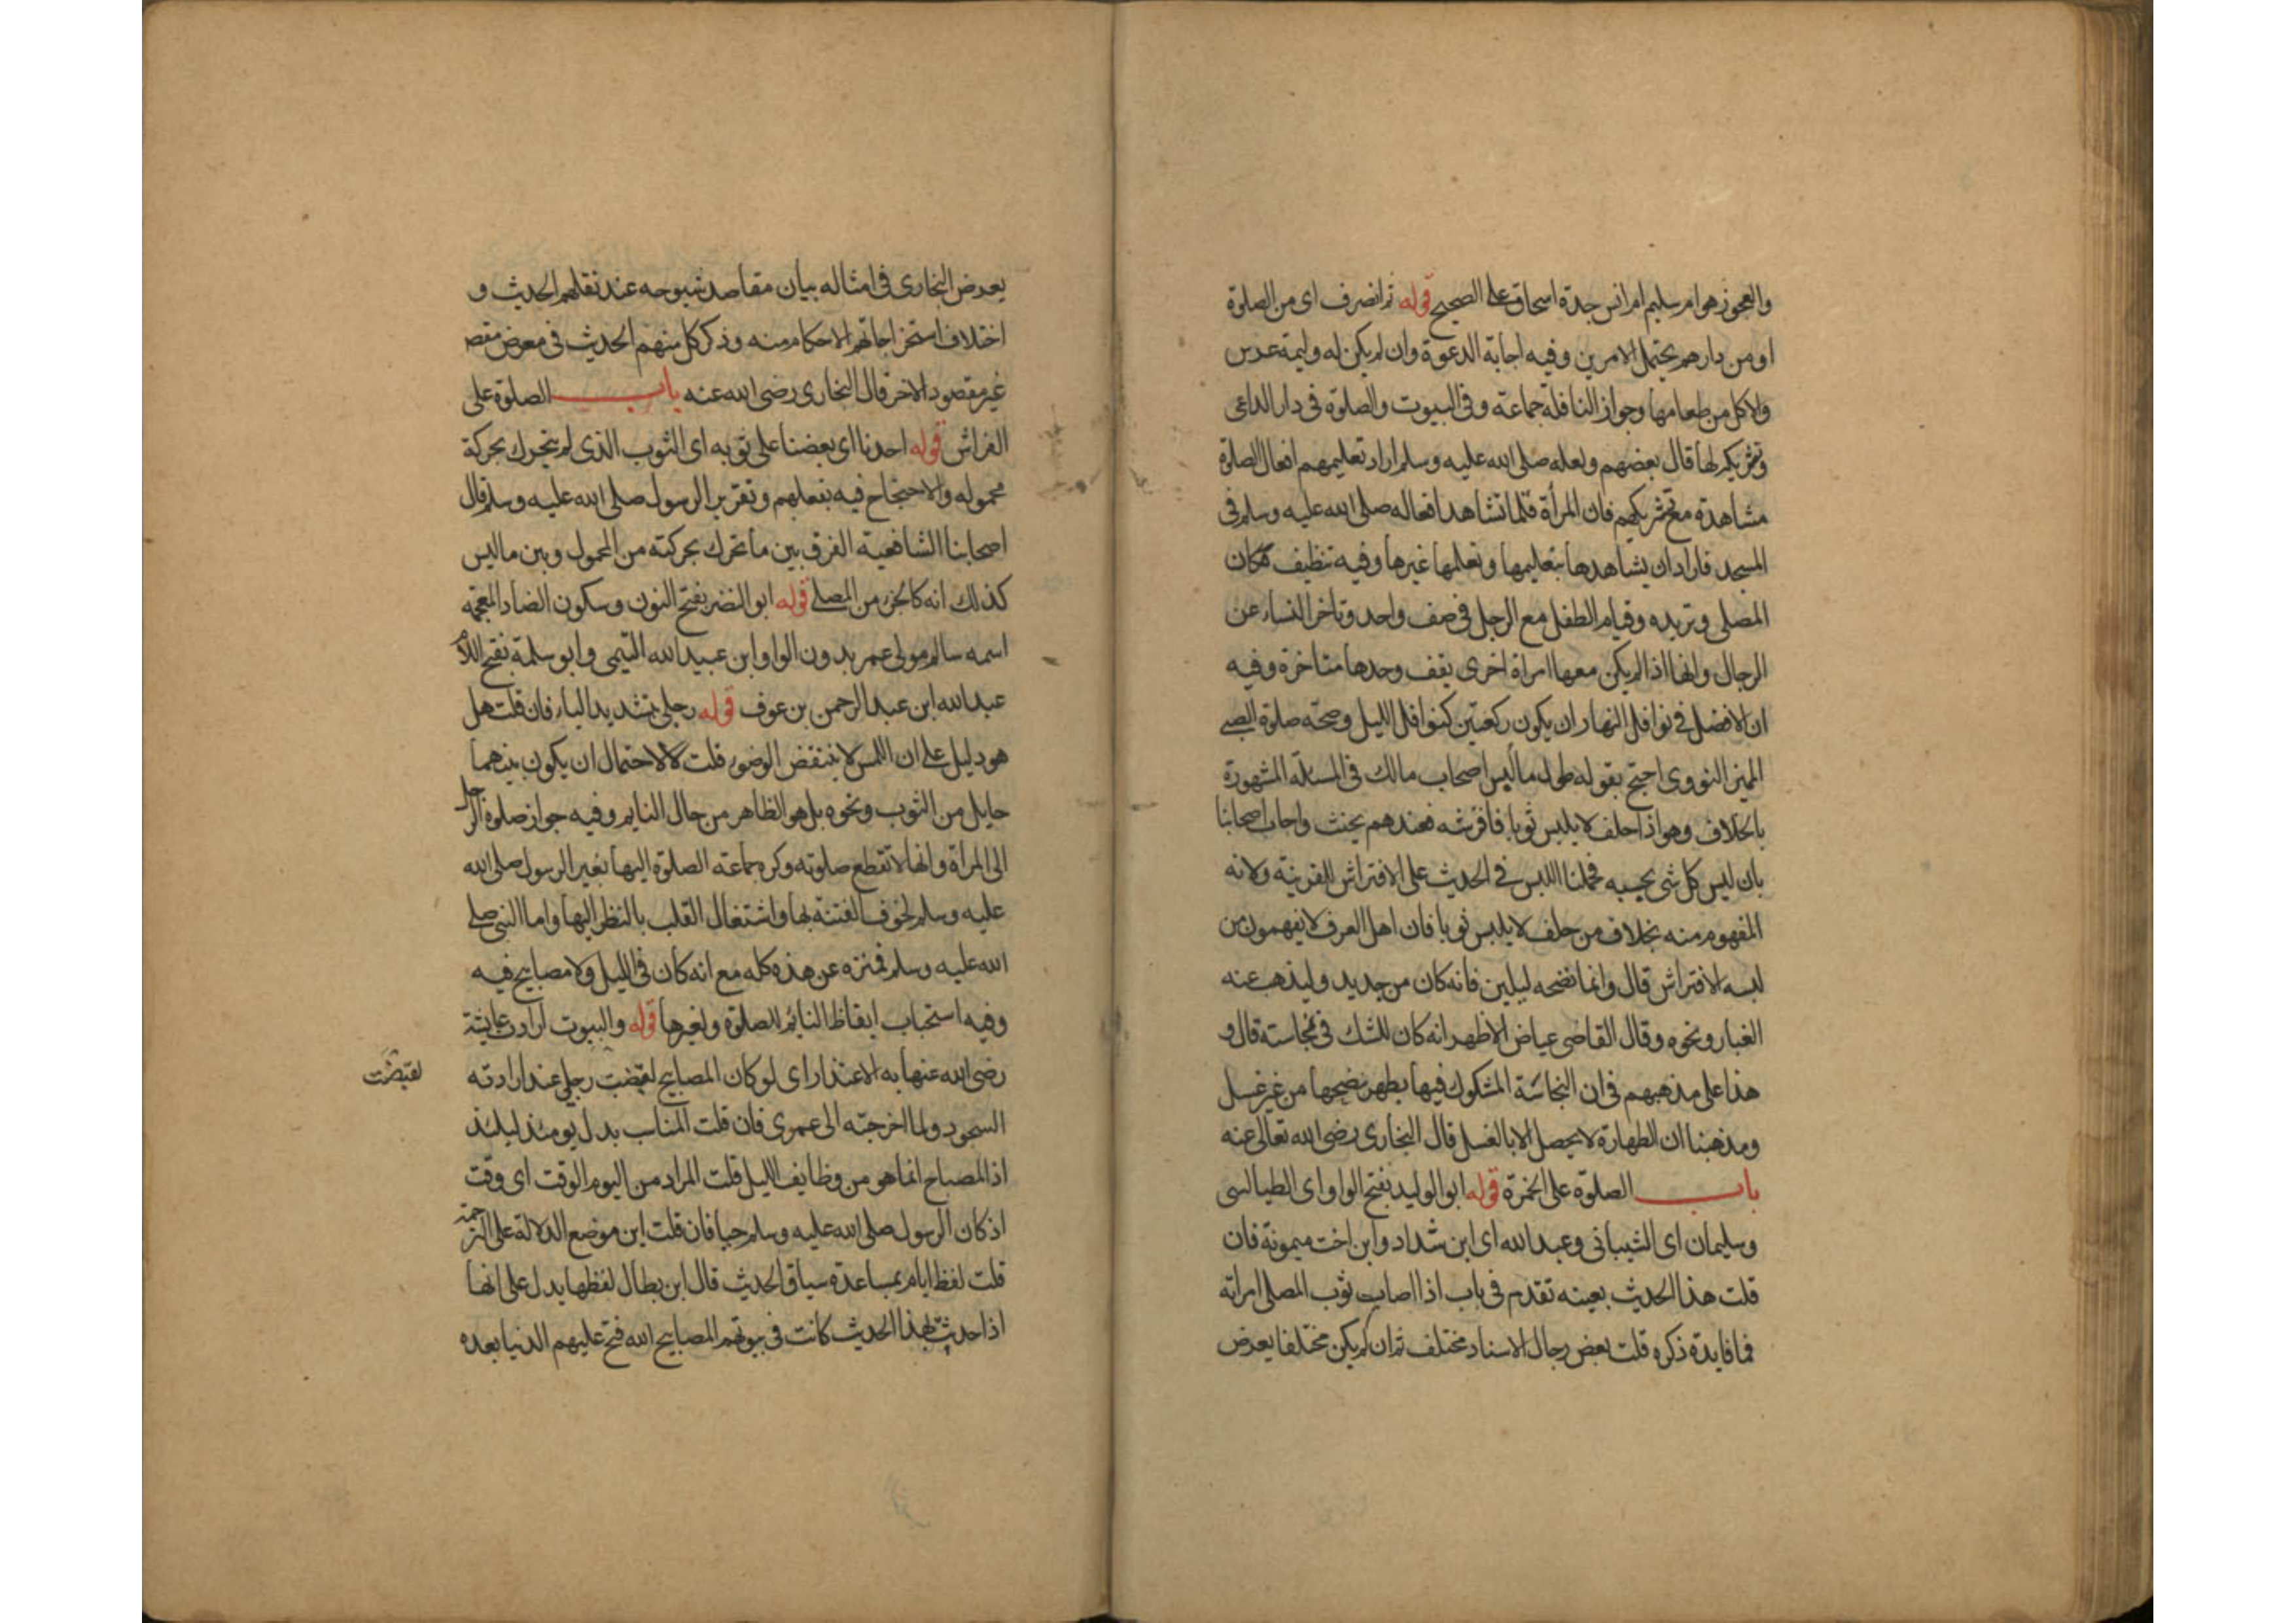 والعجوز هو ام سليم ام انس جدة اسحاق على الصحيح قوله ثم انصرف اى من الصلوة
او من دارهم يحتمل الامرين وفيه اجابة الدعوة وان لم يكن له وليمة عرس
والاكل من طعامها وجواز النافلة جماعة وفى البيوت والصلوة فى دار الداعى
وتبريكه لها قال بعضهم ولعله صلى الله عليه وسلم اراد تعليمهم افعال الصلوة
مشاهدة مع تبريكهم فان المرأة قلما تشاهد افعاله صلى الله عليه وسلم فى
المسجد فاراد ان يشاهدها بتعليمها وتعلمها غيرها وفيه تنظيف مكان
المصلى وتبريده وقيام الطفل مع الرجل فى صف واحد وتاخر النساء عن
الرجال وانها اذا لم يكن معها امراة اخرى يقف وحدها متاخرة وفيه
ان الافضل فى نوافل النهار ان يكون ركعتين كنوافل الليل وصحة صلوة الصبى
المميز النووى احتج بقوله طول ما لبس اصحاب مالك فى المسئلة المشهورة
بالخلاف وهو اذا حلف لا يلبس ثوبا فافترشه فعندهم يحنث واجاب اصحابنا
بان لبس كل شى بحسبه فحملنا اللبس فى الحديث على الافتراش للقرينة ولانه
المفهوم منه بخلاف من حلف لا يلبس ثوبا فان اهل العرف لا يفهمون من
لبسه الافتراش قال وانما نضحه ليلين فانه كان من جديد وليذهب عنه
الغبار ونحوه وقال القاضى عياض الاظهر انه كان للشك فى نجاسته قال و
هذا على مذهبهم فى ان النجاسة المشكوك فيها يطهر بنضحها من غير غسل
ومذهبنا ان الطهارة لا يحصل الا بالغسل قال البخارى رضى الله تعالى عنه
باب الصلوة على الخمرة قوله ابو الوليد بفتح الواو اى الطيالسى
وسليمان اى الشيبانى وعبد الله اى ابن شداد وابن اخت ميمونة فان
قلت هذا الحديث بعينه تقدم فى باب اذا اصاب ثوب المصلى امراته
فما فايدة ذكره قلت بعض رجال الاسناد مختلف ثم ان لم يكن مختلفا يعرض
يعرض البخارى فى امثاله بيان مقاصد شيوخه عند نقلهم الحديث و
اختلاف استخراجاتهم الاحكام منه وذكر كل منهم الحديث فى معرض مقصد
غير مقصود الاخر قال البخارى رضى الله عنه باب الصلوة على
الفراش قوله احدنا اى بعضنا على ثوبه اى الثوب الذى لم يتحرك بحركة
محموله والاحتجاج فيه بفعلهم وتقرير الرسول صلى الله عليه وسلم قال
اصحابنا الشافعية الفرق بين ما تحرك بحركته من المحمول وبين ما ليس
كذلك انه كالجزء من المصلى قوله ابو النضر بفتح النون وسكون الضاد المعجمة
اسمه سالم مولى عمر بدون الواو ابن عبيد الله التيمى وابو سلمة بفتح اللام
عبد الله ابن عبد الرحمن بن عوف قوله رجلى بتشديد الياء فان قلت هل
هو دليل على ان اللمس لا ينتقض الوضوء قلت لا لاحتمال ان يكون بينهما
حايل من الثوب ونحوه بل هو الظاهر من حال النايم وفيه جواز صلوة الرجل
الى المراة وانها لا تقطع صلوته وكره جماعة الصلوة اليها بغير الرسول صلى الله
عليه وسلم لخوف الفتنة بها واشتغال القلب بالنظر اليها واما النبى صلى
الله عليه وسلم فمنزه عن هذه كله مع انه كان فى الليل ولا مصابيح فيه
وفيه استحباب ايقاظ النائم للصلوة ولغيرها قوله والبيوت ارادت عايشة
رضى الله عنها به الاعتذار اى لو كان المصابيح لقبضت رجلى عند ارادته
لقبضت
السجود ولما احوجته الى غمزى فان قلت المناسب بدل يومئذ ليلتئذ
اذ المصباح انما هو من وظايف الليل قلت المراد من اليوم الوقت اى وقت
اذ كان الرسول صلى الله عليه وسلم حيا فان قلت اين موضع الدلالة على الترجمة
قلت لفظ ايام بمساعدة سياق الحديث قال ابن بطال لفظها يدل على انها
اذا حدثت بهذا الحديث كانت فى بيوتهم المصابيح الله فتح عليهم الدنيا بعده